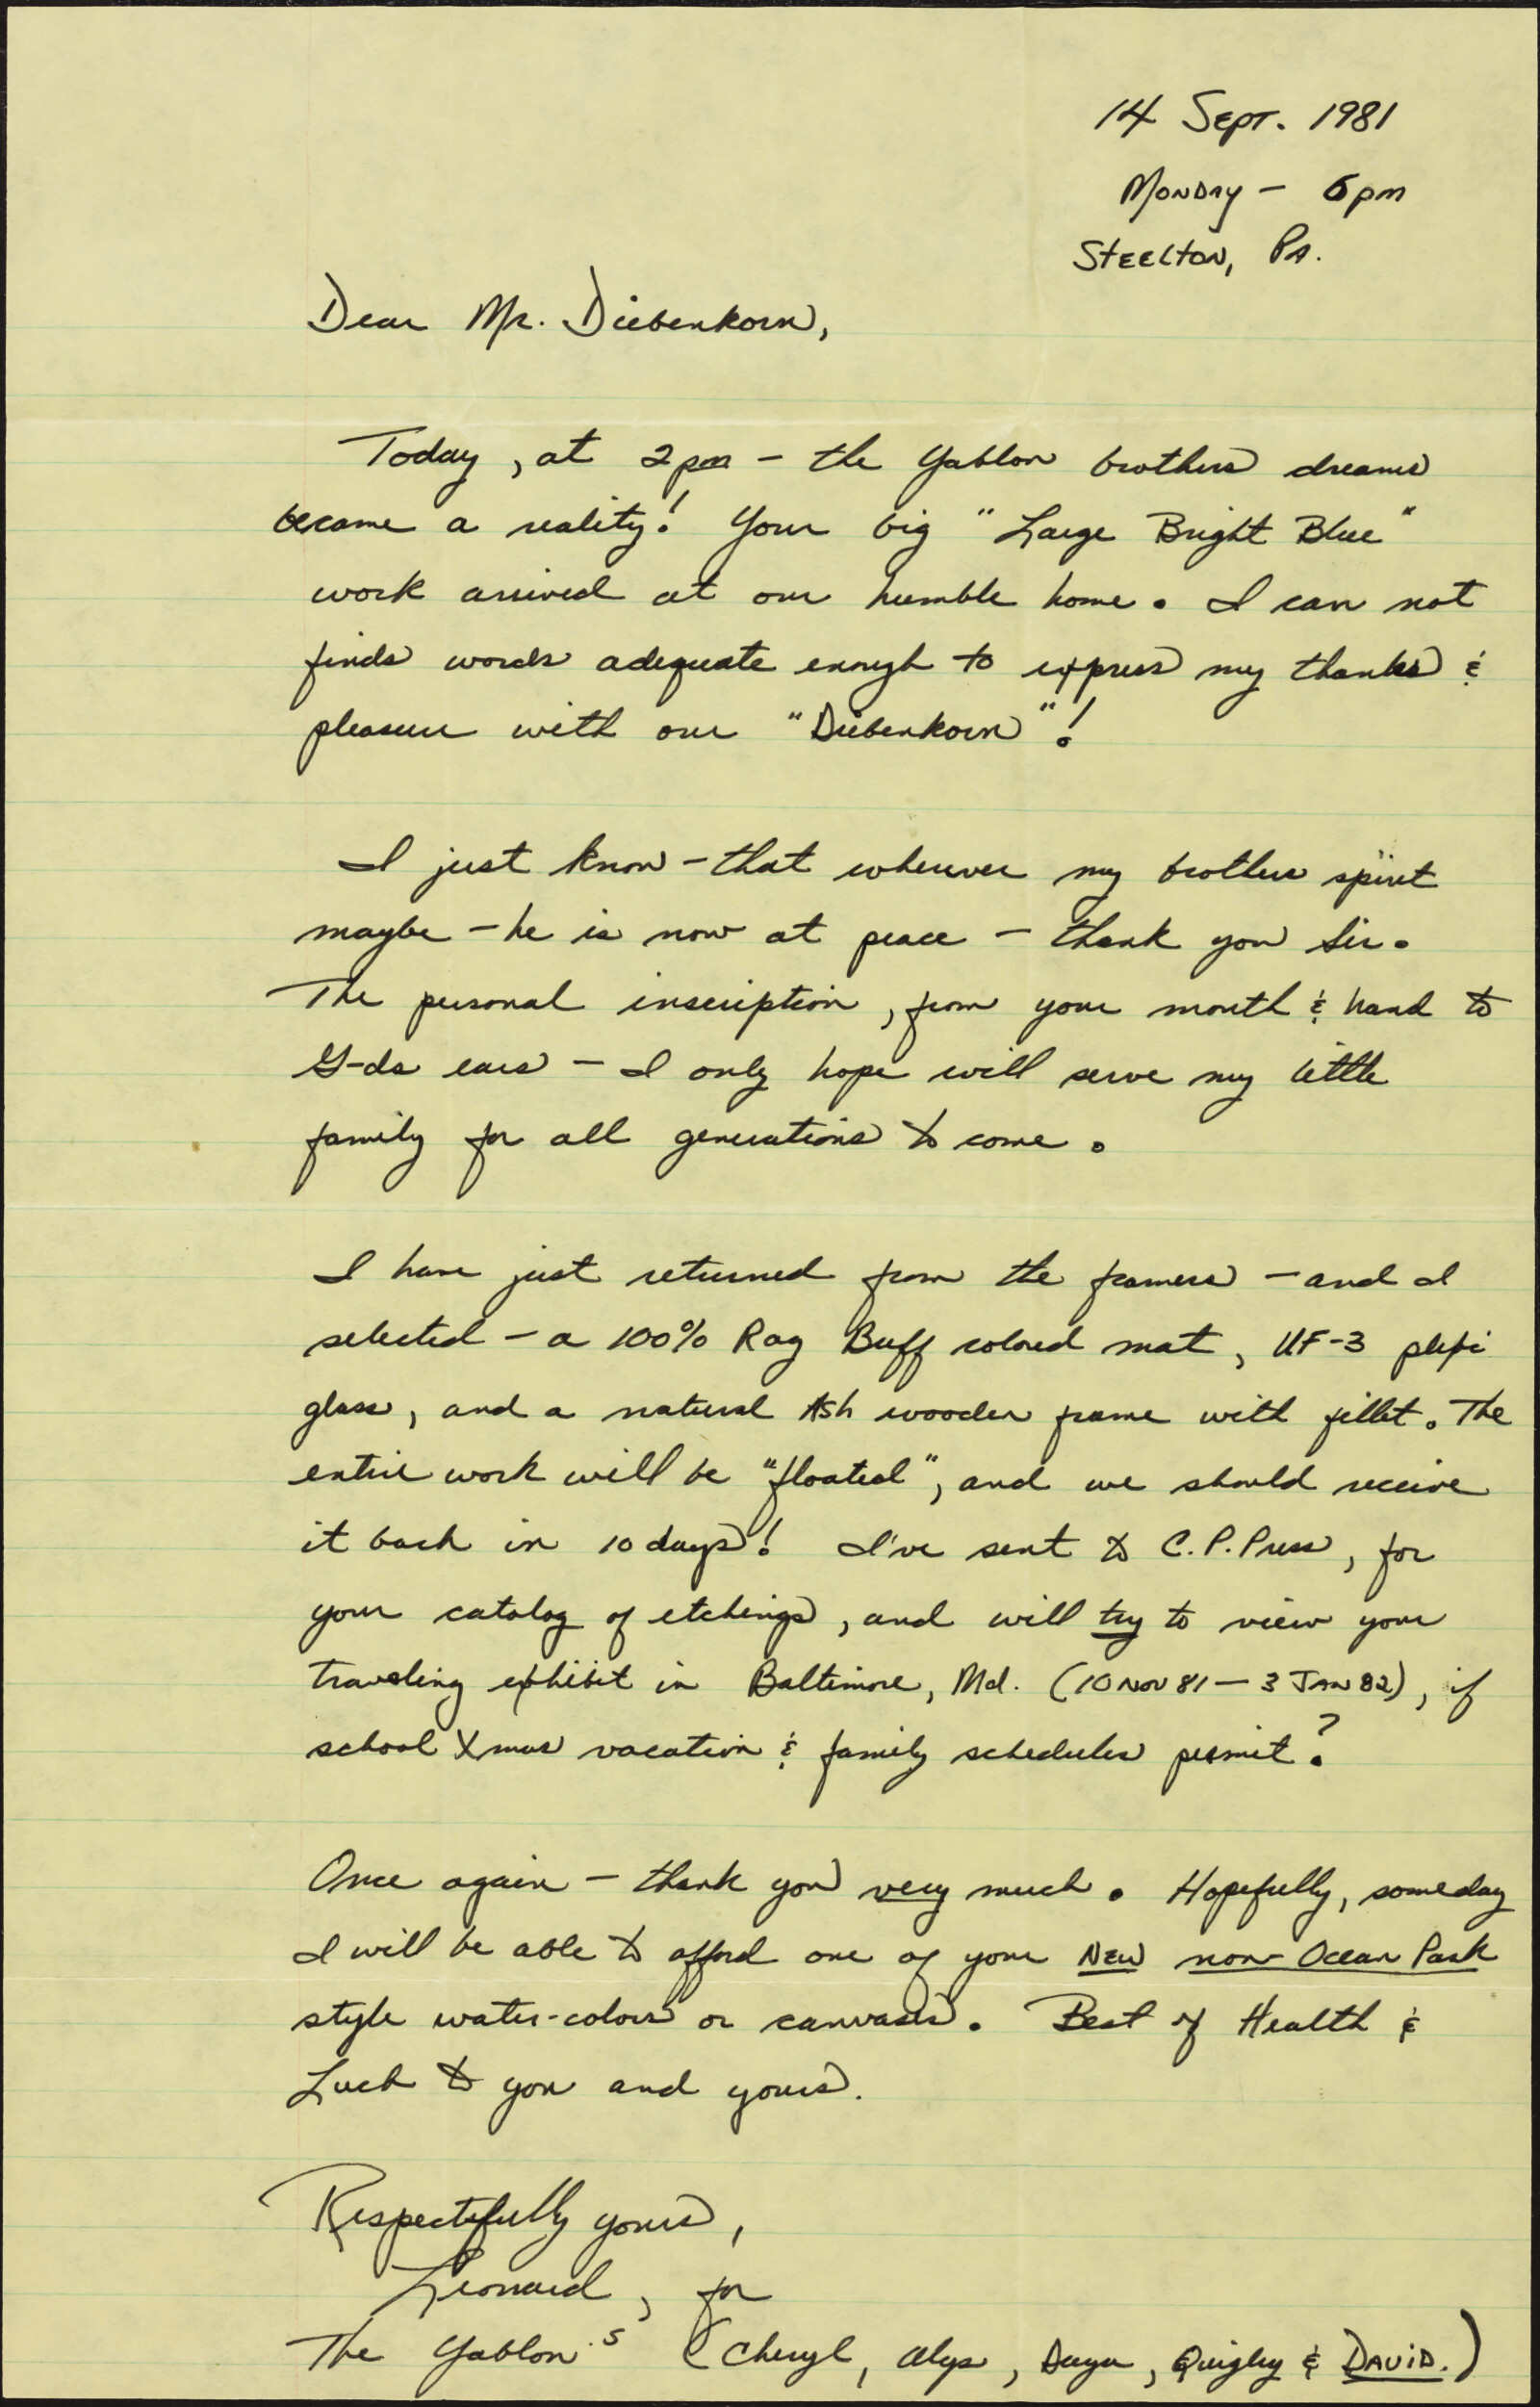 14 Sept. 1981
Monday - 6pm
Steelton, Pa.
Dear Mr. Diebenkorn,
Today, at 2pm - the Yablon brothers dreams
became a reality! Your big "Large Bright Blue"
work arrived at our humble home. I can not
finds words adequate enough to express my thanks &
pleasure with our "Diebenkorn"!
I just know - that wherever my brothers spirit
maybe - he is now at peace - thank you Sir.
The personal inscription, from your mouth & hand to
G-ds ears - I only hope will serve my little
family for all generations to come.
I have just returned from the framers - and I
selected - a 100% Rag Buff colored mat, UF-3 plexi
glass, and a natural Ash wooden frame with fillet. The
entire work will be "floated", and we should receive
it back in 10 days! I've sent to C.P. Press, for
your catalog of etchings, and will try to view your
traveling exhibit in Baltimore, Md. (10 Nov 81 - 3 Jan 82), if
school Xmas vacation & family schedules permit?
Once again - thank you very much. Hopefully, someday
I will be able to afford one of your New non-Ocean Park
style water-colors or canvases. Best of Health &
Luck to you and yours.
Respectfully yours,
Leonard, for
The Yablon's (Cheryl, Alys, Quigley & David.)